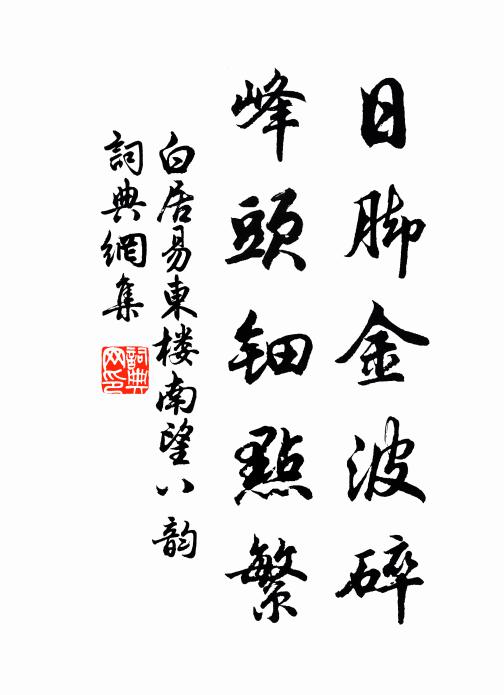 日脚金波碎
峰頭钿點繁
白居易東楼南望八韵
詞典網集
詞典網印